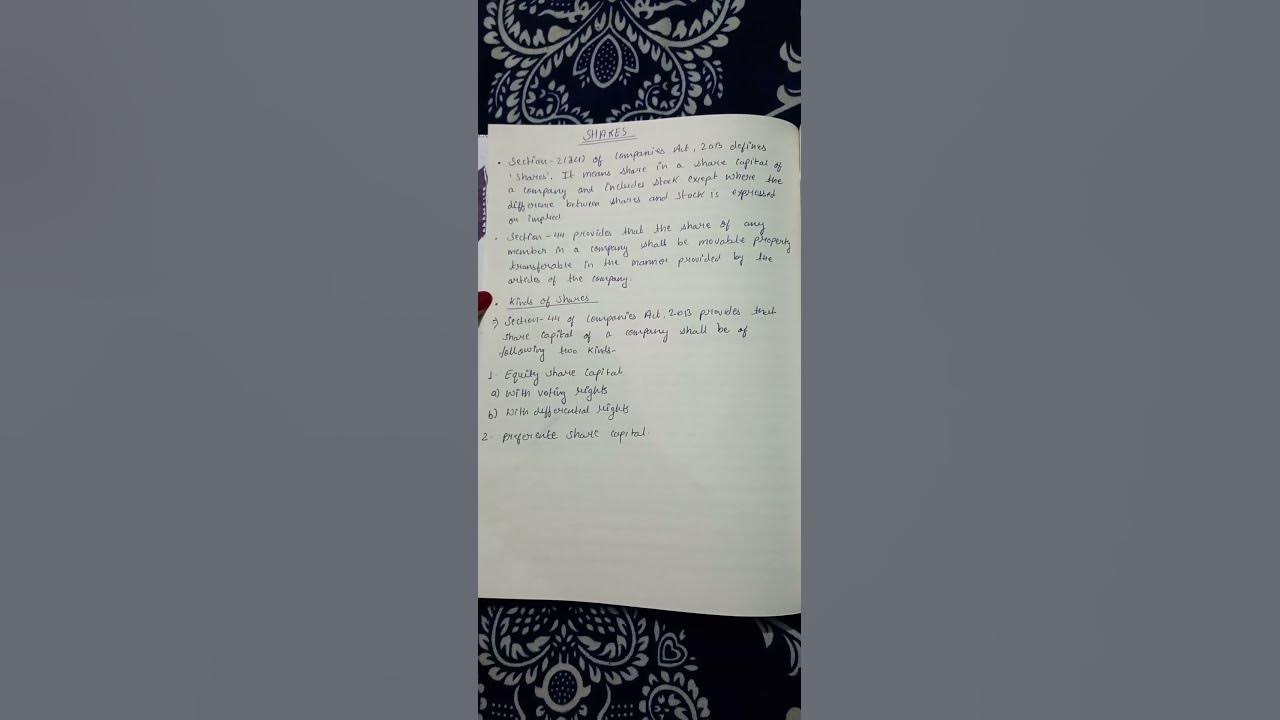 SHARES
• Section-2(84) of Companies Act, 2013 defines
'Shares'. It means share in a share capital of
a company and includes stock except where the
difference between shares and stock is expressed
or implied
• Section-44 provides that the share of any
member in a company shall be movable property
transferable in the manner provided by the
articles of the company.
• Kinds of Shares
⇒ Section-44 of Companies Act, 2013 provides that
share capital of a company shall be of
following two kinds-
1. Equity share capital
a) With voting rights
b) With differential rights
2. Preference share capital.